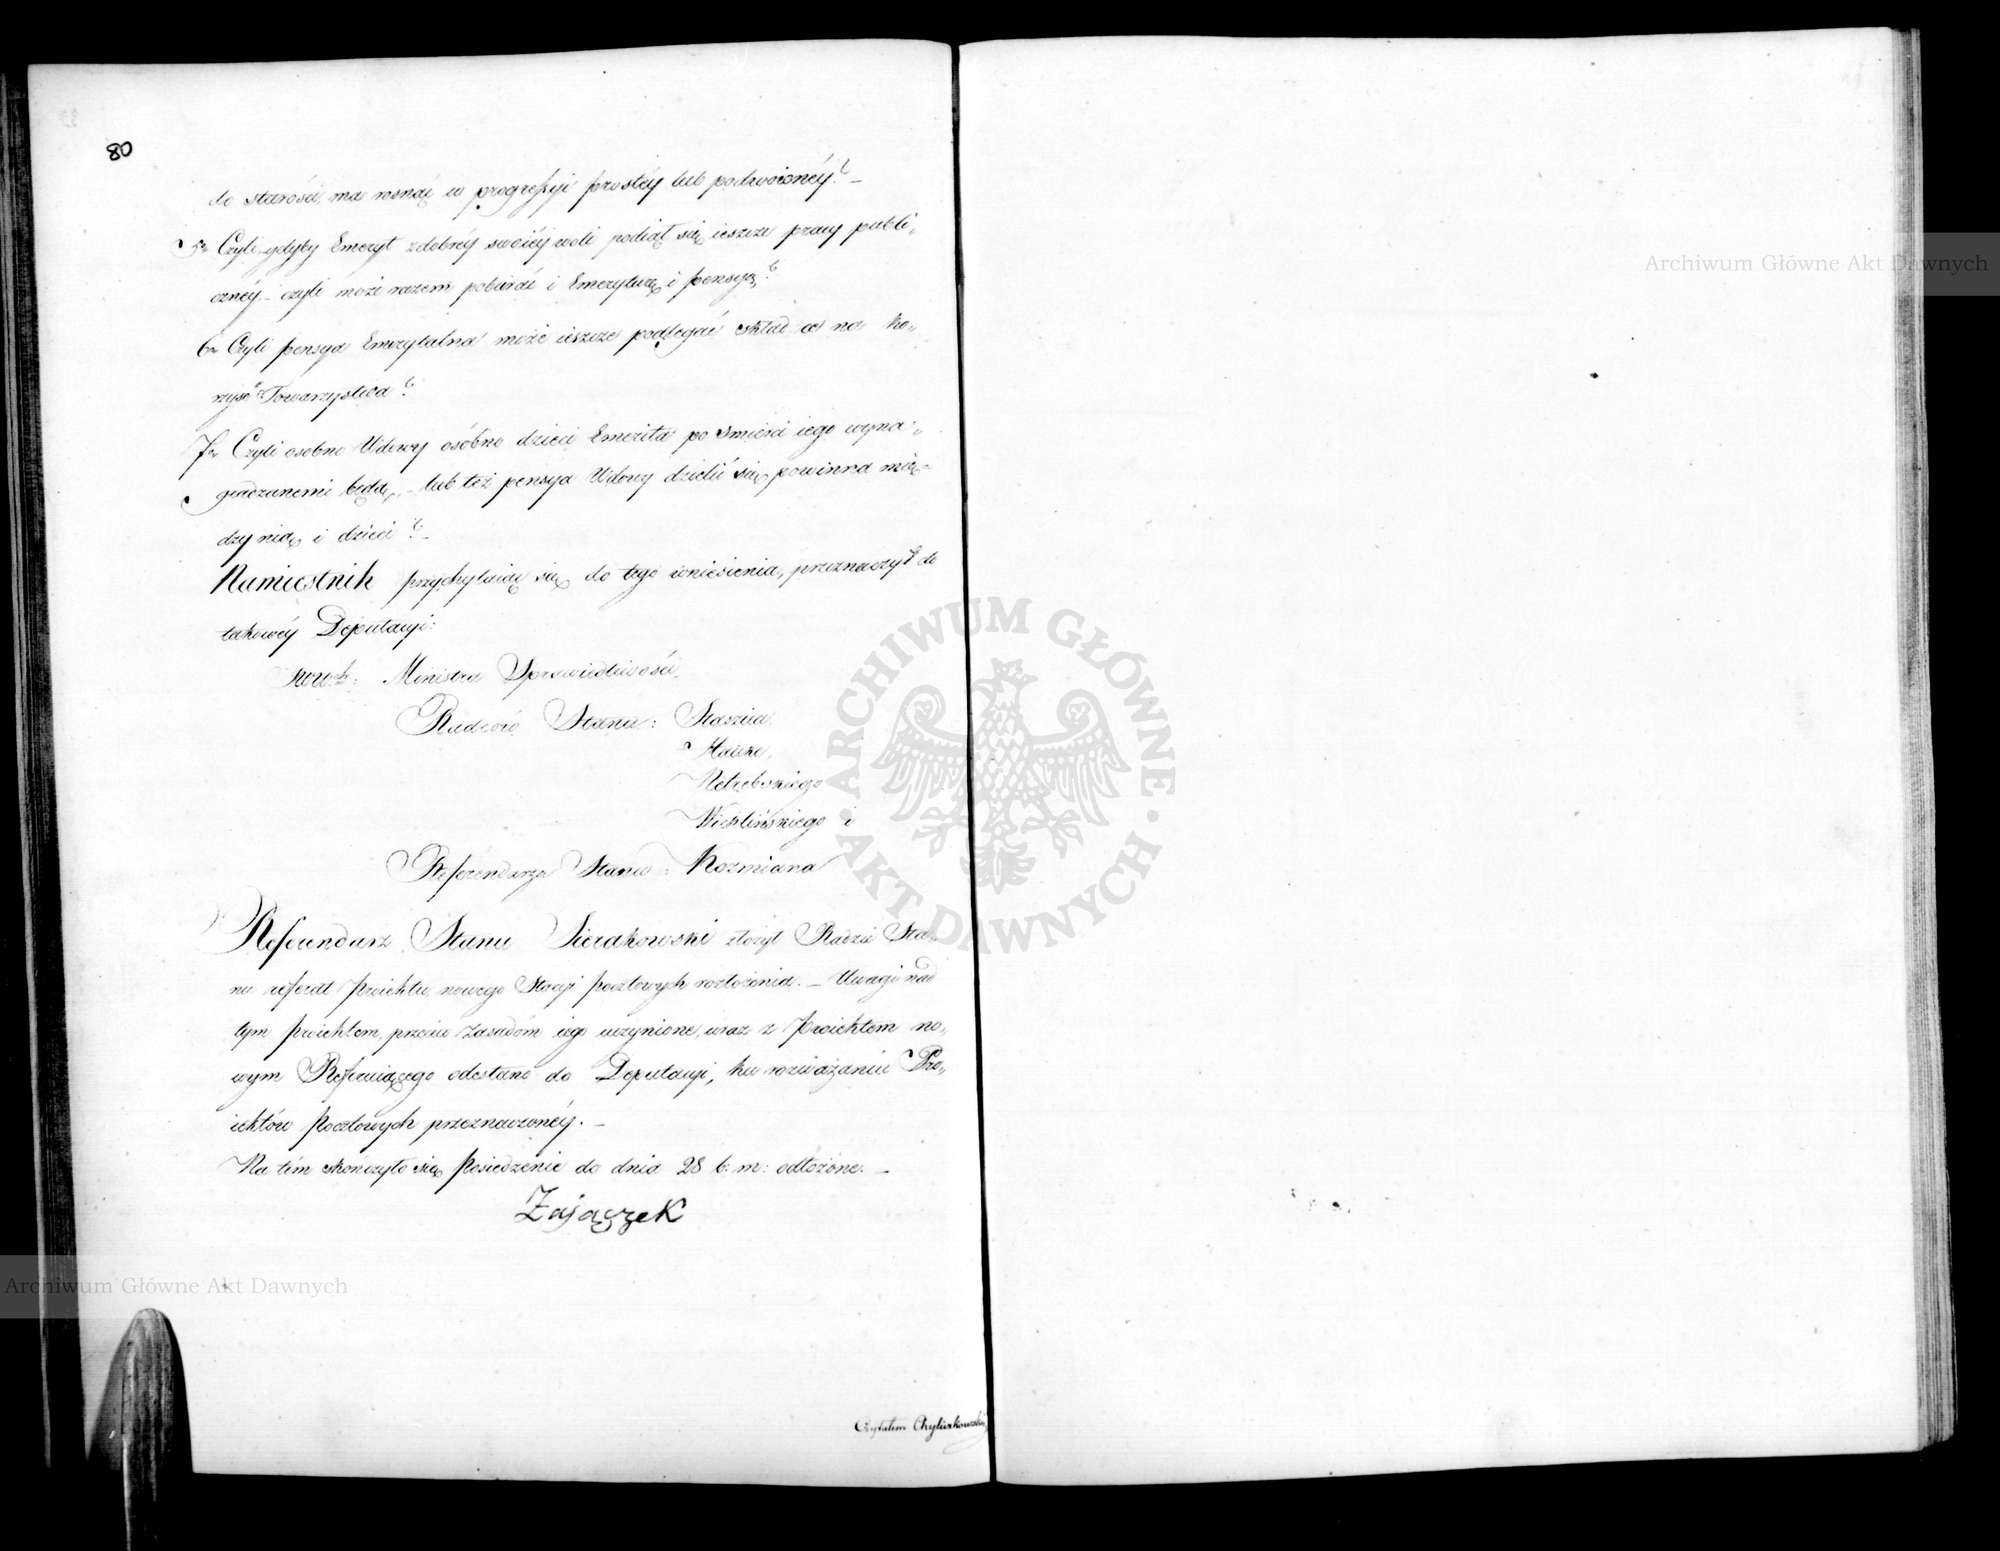 80
do starości, ma rosnąć w progressyi prostéy lub podwoionéy? –
5º Czyli gdyby Emeryt z dobréy swoiéy woli podiął się ieszcze pracy publi-
cznéy – czyli może razem pobierać i Emeryturę i pensyą?
6º Czyli pensya Emerytalna może ieszcze podlegać składce na ko-
rzyść Towarzystwa?
7º Czyli osobno Wdowy osóbno dzieci Emerita po śmierci iego wyna-
gradzanemi będą, – lub też pensya Wdowy dzielić się powinna mię-
dzy nią i dzieci? –
Namiestnik przychylaiąc się do tego wniesienia, przeznaczył do
takowéy Deputacyi:
Ministra Sprawiedliwości,
Radców Stanu: Staszica
Hauke,
Nekrebskiego
Wichlińskiego i
Referendarza Stanu: Kozmiana
Referendarz Stanu Sierakowski złożył Radzie Sta-
nu referat Proiektu, nowego Stacyi pocztowych rozłożenia. – Uwagi nad
tym proiektem, przeciw zasadóm iego uczynione, wraz z Proiektem no-
wym Referuiącego odesłano do Deputacyi, ku rozważaniu Pro-
iektów Pocztowych przeznaczonéy. –
Na tém skończyło się Posiedzenie do dnia 28 b: m: odłożone. –
Zajączek
Czytałem Chyliczkowski
Archiwum Główne Akt Dawnych
Archiwum Główne Akt Dawnych
ARCHIWUM GŁÓWNE AKT DAWNYCH